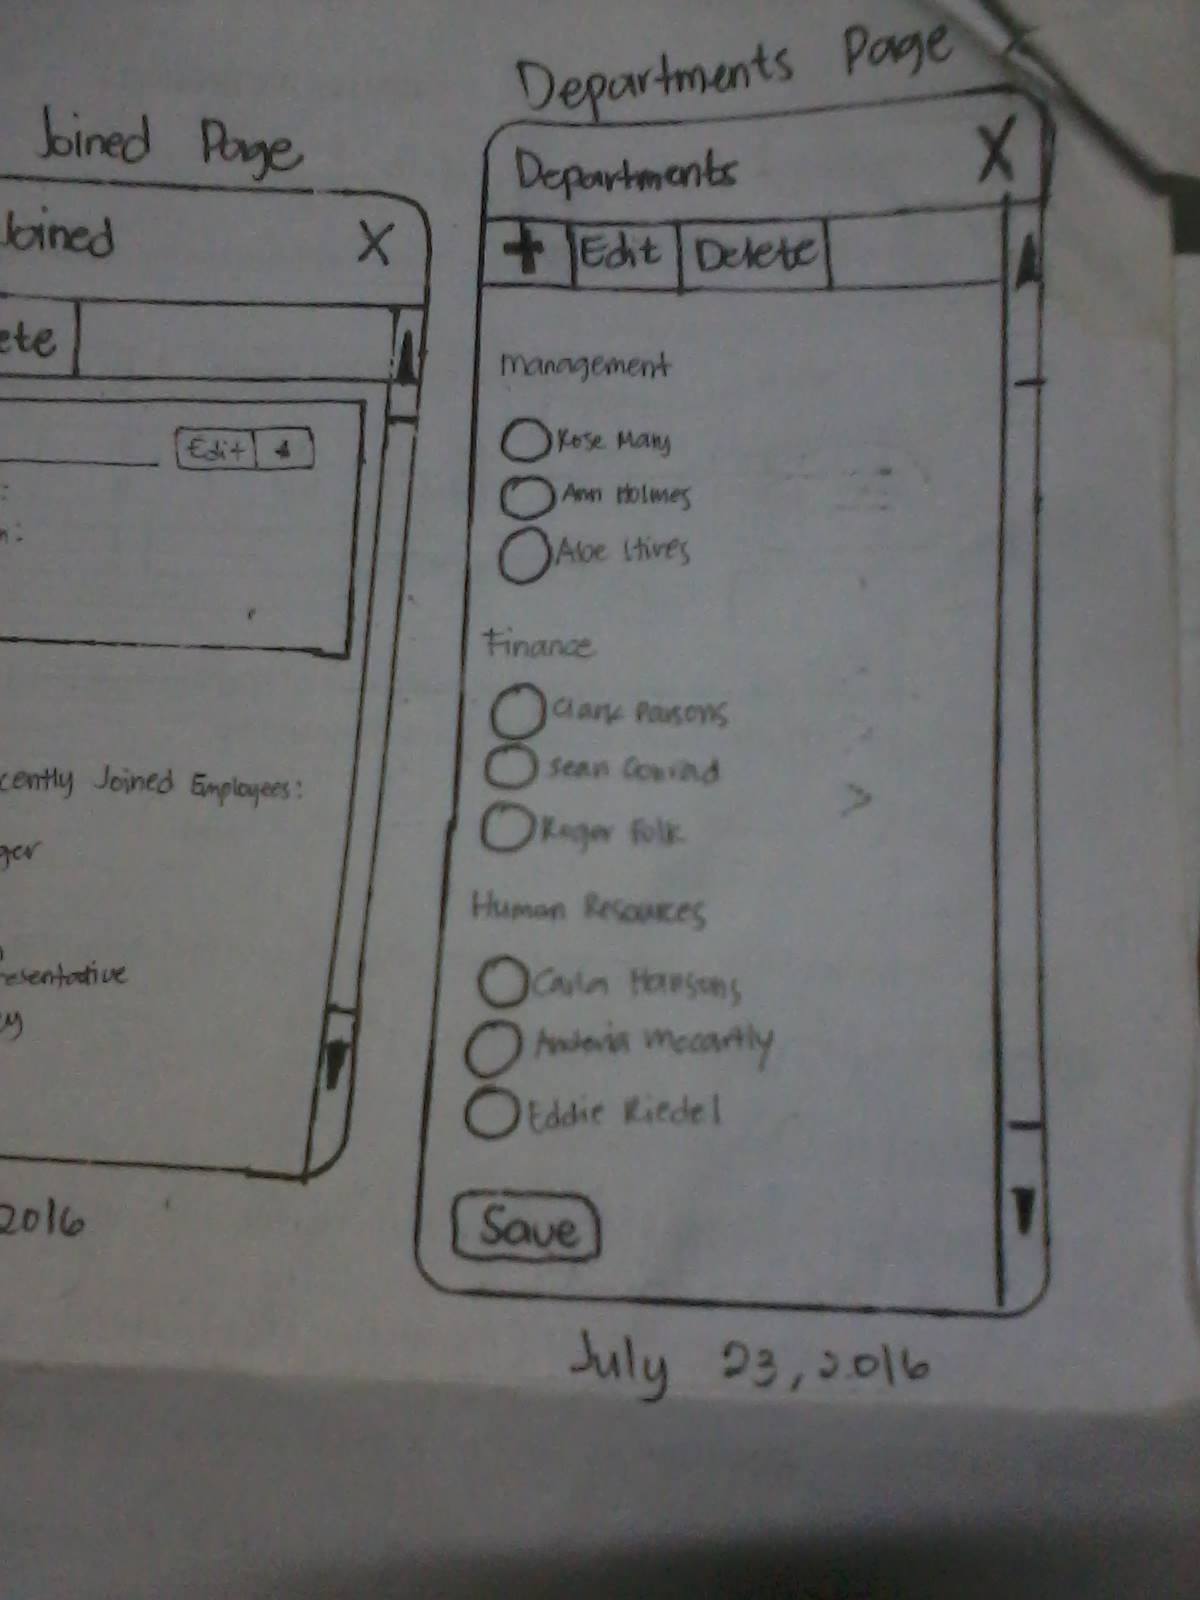 Joined Page
Joined
X
ete
Edit
:
n:
cently Joined Employees:
ger
resentative
ey
2016
Departments Page
Departments
X
+ Edit Delete
management
Rose Mary
Ann Holmes
Aloe
Finance
Clark Parsons
Sean Conrad
Roger Folk
Human Resources
Carla Hansons
Mccartly
Eddie Riedel
Save
July 23, 2016